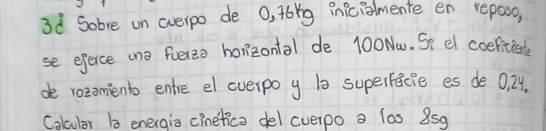 3º Sobre un cuerpo de 0,76Kg inicialmente en reposo,
se ejerce una fuerza horizontal de 100Nw. Si el coeficiente
de rozamiento entre el cuerpo y la superfacie es de 0,24.
Calcular la energía cinética del cuerpo a los 8sg